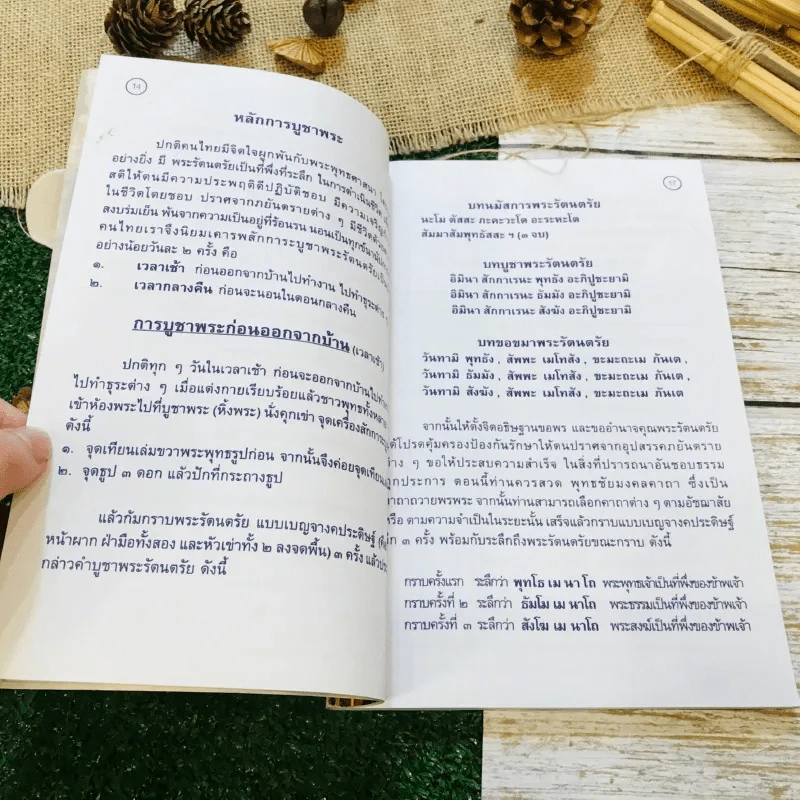 14
หลักการบูชาพระ
ปกติคนไทยมีจิตใจผูกพันกับพระพุทธศาสนา
อย่างยิ่ง มี พระรัตนตรัยเป็นที่พึ่งที่ระลึก ในการดำเนินชีวิต
สติให้ตนมีความประพฤติดีปฏิบัติชอบ มีความเจริญ
ในชีวิตโดยชอบ ปราศจากภยันตรายต่าง ๆ มีชีวิตด้วย
สงบร่มเย็น พ้นจากความเป็นอยู่ที่ร้อนรน นอนเป็นทุกข์
คนไทยเราจึงนิยมเคารพสักการะบูชาพระรัตนตรัยเป็น
อย่างน้อยวันละ ๒ ครั้ง คือ
๑. เวลาเช้า ก่อนออกจากบ้านไปทำงาน ไปทำธุระต่าง ๆ
๒. เวลากลางคืน ก่อนจะนอนในตอนกลางคืน
การบูชาพระก่อนออกจากบ้าน (เวลาเช้า)
ปกติทุก ๆ วันในเวลาเช้า ก่อนจะออกจากบ้านไปทำ
ไปทำธุระต่าง ๆ เมื่อแต่งกายเรียบร้อยแล้วชาวพุทธทั้งหลาย
เข้าห้องพระไปที่บูชาพระ (หิ้งพระ) นั่งคุกเข่า จุดเครื่องสักการะ
ดังนี้
๑. จุดเทียนเล่มขวาพระพุทธรูปก่อน จากนั้นจึงค่อยจุดเทียน
๒. จุดธูป ๓ ดอก แล้วปักที่กระถางธูป
แล้วก้มกราบพระรัตนตรัย แบบเบญจางคประดิษฐ์ (คือ
หน้าผาก ฝ่ามือทั้งสอง และหัวเข่าทั้ง ๒ ลงจดพื้น) ๓ ครั้ง แล้ว
กล่าวคำบูชาพระรัตนตรัย ดังนี้
บทนมัสการพระรัตนตรัย
นะโม ตัสสะ ภะคะวะโต อะระหะโต
สัมมาสัมพุทธัสสะ ฯ (๓ จบ)
บทบูชาพระรัตนตรัย
อิมินา สักกาเรนะ พุทธัง อะภิปูชะยามิ
อิมินา สักกาเรนะ ธัมมัง อะภิปูชะยามิ
อิมินา สักกาเรนะ สังฆัง อะภิปูชะยามิ
บทขอขมาพระรัตนตรัย
วันทามิ พุทธัง , สัพพะ เมโทสัง , ขะมะถะเม ภันเต ,
วันทามิ ธัมมัง , สัพพะ เมโทสัง , ขะมะถะเม ภันเต ,
วันทามิ สังฆัง , สัพพะ เมโทสัง , ขะมะถะเม ภันเต
จากนั้นให้ตั้งจิตอธิษฐานขอพร และขออำนาจคุณพระรัตนตรัย
ได้โปรดคุ้มครองป้องกันรักษาให้ตนปราศจากอุปสรรคภยันตราย
ต่าง ๆ ขอให้ประสบความสำเร็จ ในสิ่งที่ปรารถนาอันชอบธรรม
ทุกประการ ตอนนี้ท่านควรสวด พุทธชัยมงคลคาถา ซึ่งเป็น
คาถาถวายพรพระ จากนั้นท่านสามารถเลือกคาถาต่าง ๆ ตามอัชฌาสัย
หรือ ตามความจำเป็นในระยะนั้น เสร็จแล้วกราบแบบเบญจางคประดิษฐ์
อีก ๓ ครั้ง พร้อมกับระลึกถึงพระรัตนตรัยขณะกราบ ดังนี้
กราบครั้งแรก ระลึกว่า พุทโธ เม นาโถ พระพุทธเจ้าเป็นที่พึ่งของข้าพเจ้า
กราบครั้งที่ ๒ ระลึกว่า ธัมโม เม นาโถ พระธรรมเป็นที่พึ่งของข้าพเจ้า
กราบครั้งที่ ๓ ระลึกว่า สังโฆ เม นาโถ พระสงฆ์เป็นที่พึ่งของข้าพเจ้า